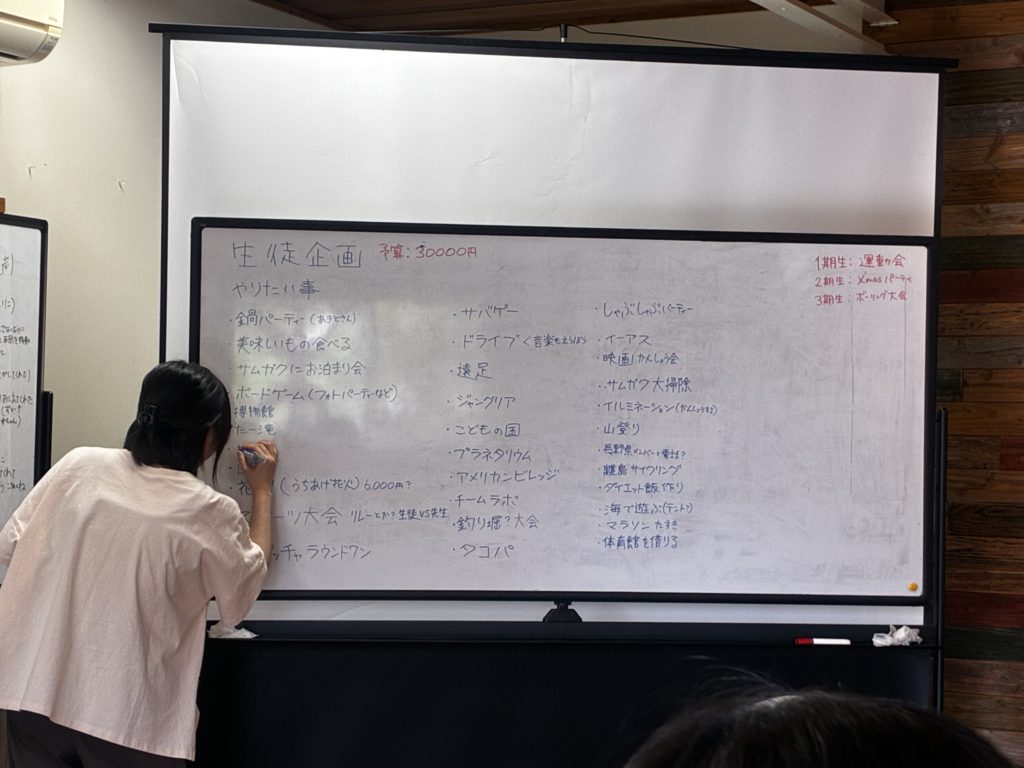 生徒企画 予算:30000円
やりたい事
・鍋パーティー(あきとさん)
・美味しいもの食べる
・サムガクにお泊まり会
・ボードゲーム(フォトパーティーなど)
博物館
たー滝
(うちあげ花火) 6,000円?
ーツ大会 リレーとか?生徒VS先生
ッチャ ラウンドワン
・サバゲー
・ドライブ
・遠足
・ジャングリア
・こどもの国
・プラネタリウム
・アメリカンビレッジ
・チームラボ
・釣り堀?大会
・タコパ
・しゃぶしゃぶパーティー
・イーアス
・映画かんしょう会
・サムガク大掃除
・イルミネーション
・山登り
・長野県メンバーと電話?
・離島サイクリング
・ダイエット飯作り
・海で遊ぶ(テント)
・マラソン たすき
・体育館を借りる
1期生:運動会
2期生:X'masパーティ
3期生:ボーリング大会